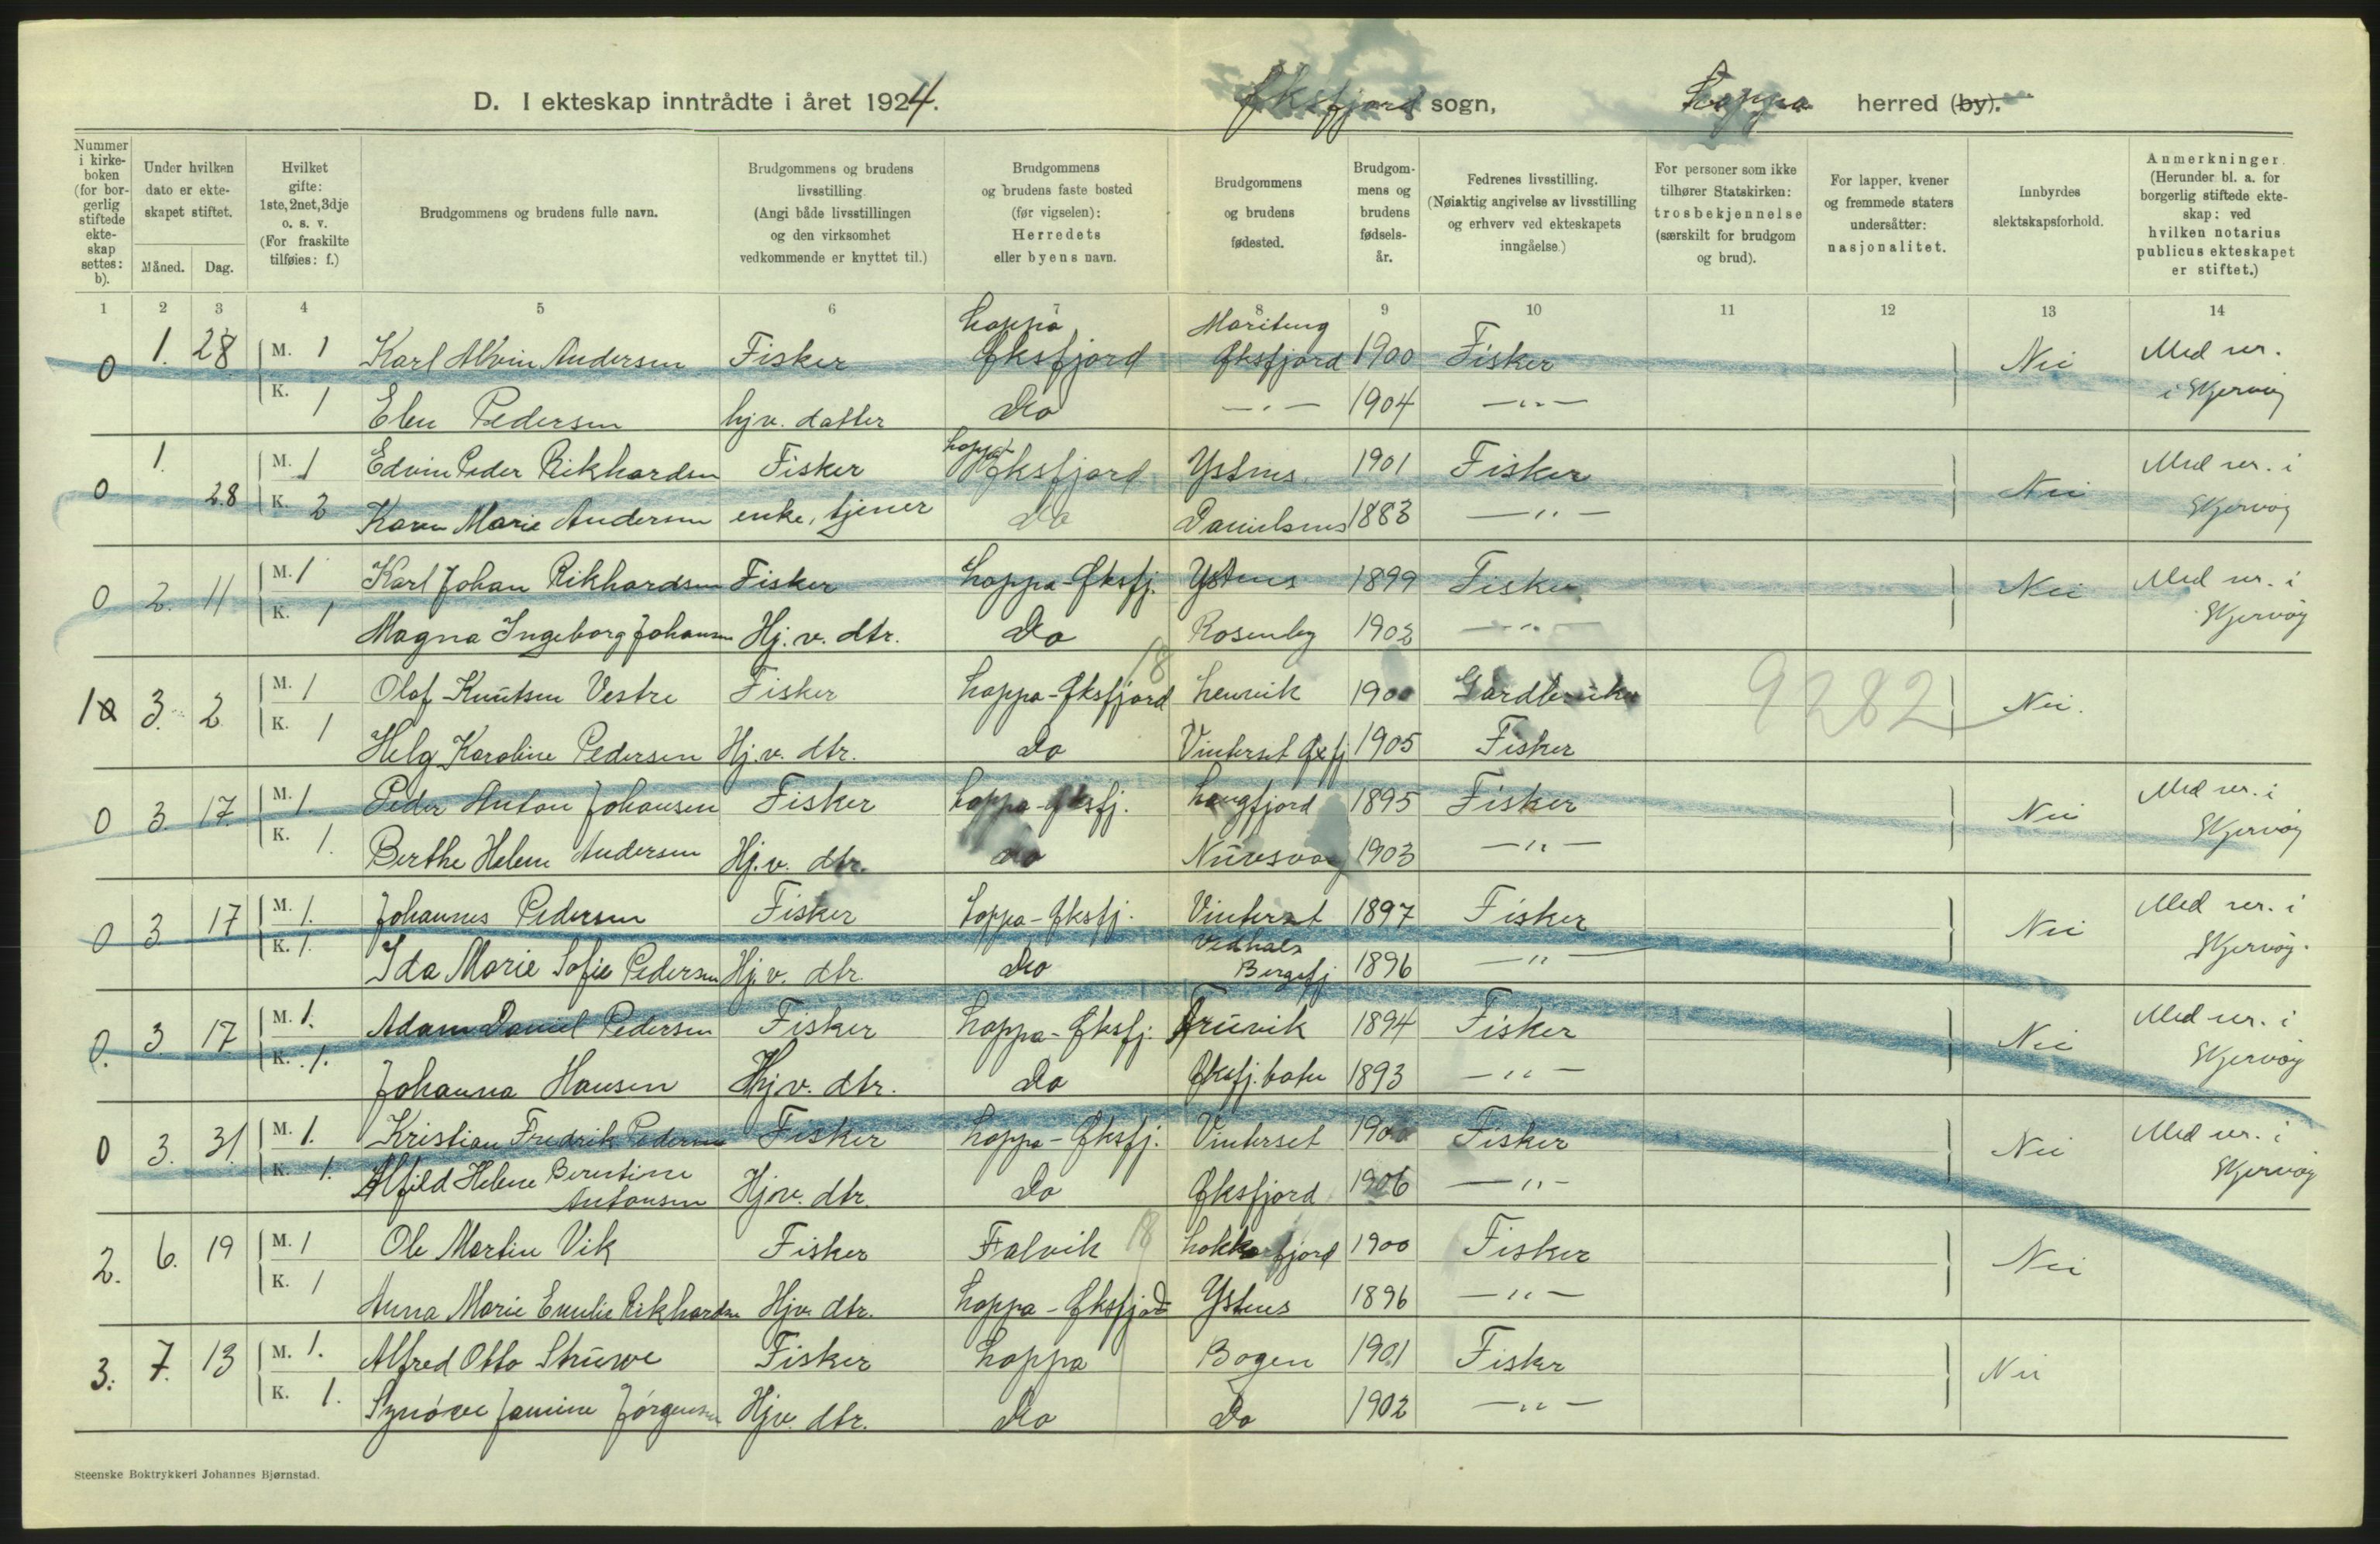 D. I ekteskap inntrådte i året 1924. Øksfjord sogn, Loppa herred (by).
Nummer i kirkeboken (for borgerlig stiftede ekteskap settes: b).
Under hvilken dato er ekteskapet stiftet.
Måned. Dag.
Hvilket gifte: 1ste, 2net, 3dje o. s. v. (For fraskilte tilføies: f.)
Brudgommens og brudens fulle navn.
Brudgommens og brudens livsstilling. (Angi både livsstillingen og den virksomhet vedkommende er knyttet til.)
Brudgommens og brudens faste bosted (før vigselen): Herredets eller byens navn.
Brudgommens og brudens fødested.
Brudgommens og brudens fødselsår.
Fedrenes livsstilling. (Nøiaktig angivelse av livsstilling og erhverv ved ekteskapets inngåelse.)
For personer som ikke tilhører Statskirken: trosbekjennelse (særskilt for brudgom og brud).
For lapper, kvener og fremmede staters undersåtter: nasjonalitet.
Innbyrdes slektskapsforhold.
Anmerkninger. (Herunder bl. a. for borgerlig stiftede ekteskap: ved hvilken notarius publicus ekteskapet er stiftet.)
1 2 3 4 5 6 7 8 9 10 11 12 13 14
0 1. 28 M. 1 Karl Alvin Andersen Fisker Loppa Øksfjord Øksfjord 1900 Fisker Nei Med ver. i Skjervøy
K. 1 Elen Pedersen hjv. datter Do —"— 1904 —"—
0 1. 28 M. 1 Edvin Peder Rikhardsen Fisker Loppa Øksfjord Ystnes 1901 Fisker Nei Med ver. i Skjervøy
K. 2 Karen Marie Andersen enke, tjener Do Danielsnes 1883 —"—
0 2. 11 M. 1 Karl Johan Rikhardsen Fisker Loppa-Øksfj. Ystnes 1899 Fisker Nei Med ver. i Skjervøy
K. 1 Magna Ingeborg Johansen Hj. v. dtr. Do 1902 —"—
18
10 3. 2 M. 1 Olaf Knutsen Vestre Fisker Loppa-Øksfjord Lenvik 1900 Gårdbruker 9282 Nei.
K. 1 Helg Karoline Pedersen Hj. v. dtr. Do Vinterset Øxfj 1905 Fisker
0 3. 17. M. 1. Peder Anton Johansen Fisker Loppa-Øksfj. Langfjord 1895 Fisker Nei Med ver. i Skjervøy
K. 1. Berthe Helene Andersen Hj. v. dtr. Do Nuvsvåg 1903 —"—
0 3. 17 M. 1. Johannes Pedersen Fisker Loppa-Øksfj. Vinterset 1897 Fisker Nei Med ver. i Skjervøy.
K. 1. Ida Marie Sofie Pedersen Hj. v. dtr. Do Vedhals Bergsfj 1896 —"—
0. 3. 17. M. 1. Adam Daniel Pedersen Fisker Loppa-Øksfj. 1894 Fisker Nei Med ver. i Skjervøy
K. 1. Johanna Hansen Hj. v. dtr. Do Øksfj. botn 1893 —"—
0 3. 31. M. 1. Kristian Fredrik Pedersen Fisker Loppa-Øksfj. Vinterset 1900 Fisker Nei Med ver. i Skjervøy
K. 1. Alfild Helene Berntine Antonsen Hjv. dtr. Do Øksfjord 1906 —"—
2. 6. 19 M. 1 Ole Martin Vik Fisker Talvik 18 Lokkarfjord 1900 Fisker Nei
K. 1 Anna Marie Emilie Rikhardsen Hjv. dtr. Loppa-Øksfjord Ystnes 1896 —"—
3. 7. 13 M. 1. Alfred Otto Struwe Fisker Loppa Bogen 1901 Fisker Nei
K. 1. Synöve Janine Jörgensen Hjv. dtr. Do Do 1902 —"—
Steenske Boktrykkeri Johannes Bjørnstad.